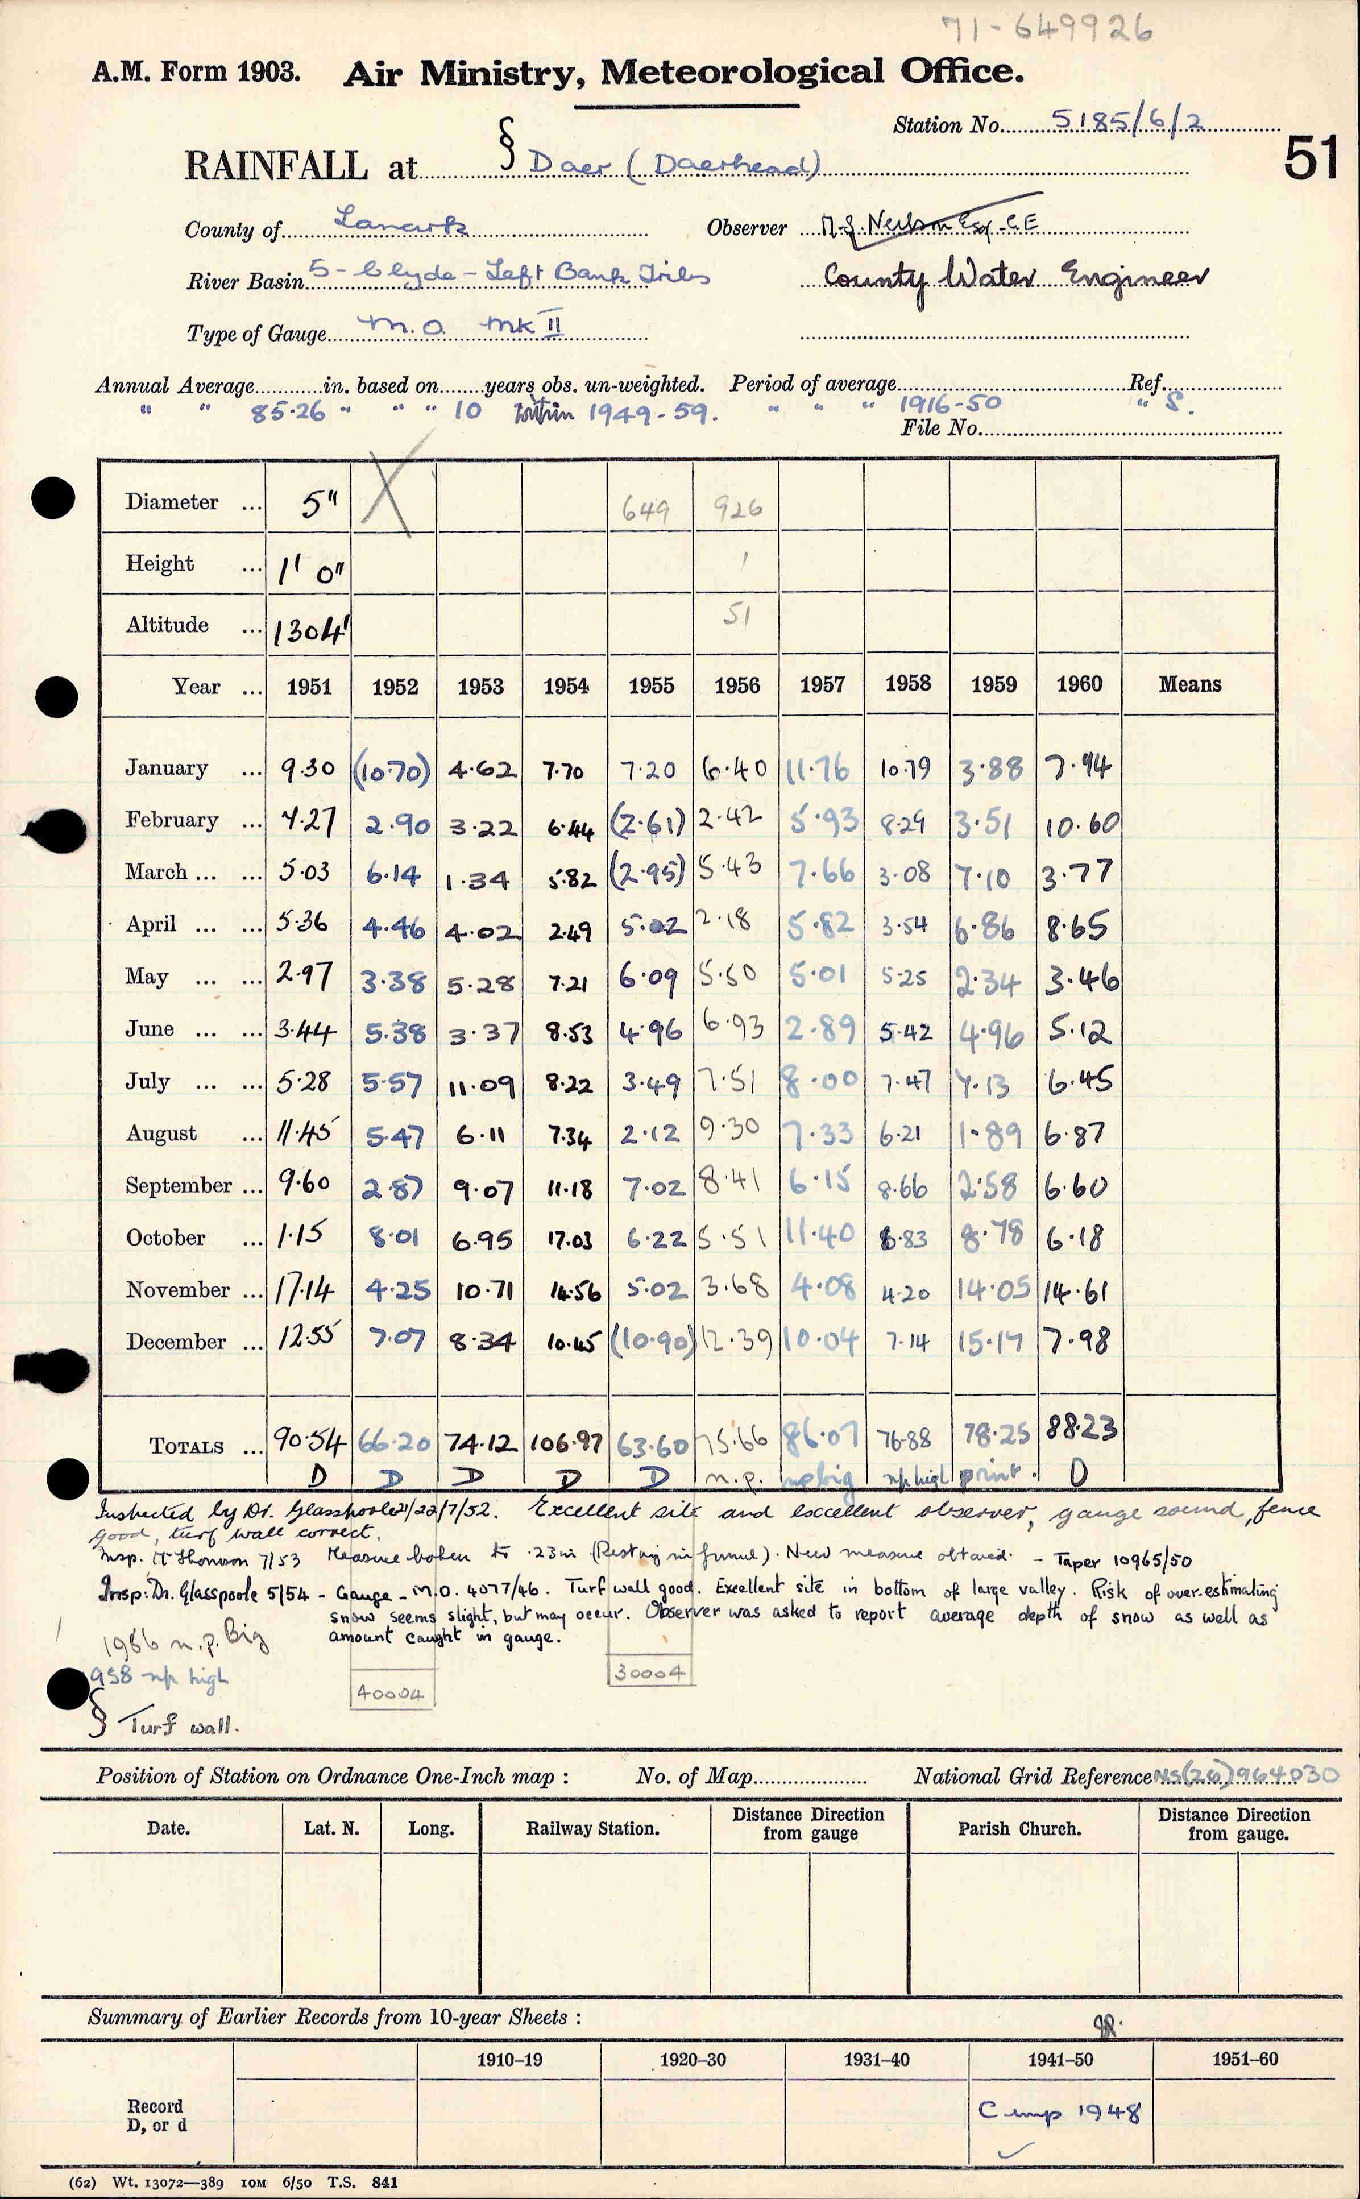 71-649926
A.M. Form 1903. Air Ministry, Meteorological Office.
Station No. 5185/6/2
51
RAINFALL at § Daer (Daerhead)
County of Lanark Observer M.S. Neilson Esq. C.E
River Basin 5 - Clyde - Left Bank Tribs County Water Engineer
Type of Gauge M.O. Mk II
Annual Average in. based on years obs. un-weighted. Period of average Ref.
" " 85.26 " " " 10 within 1949-59. " " " 1916-50 " S.
File No.
Diameter ... 5" 649 926
Height ... 1' 0" 1
Altitude ... 1304' 51
Year ... 1951 1952 1953 1954 1955 1956 1957 1958 1959 1960 Means
January ... 9.30 (10.70) 4.62 7.70 7.20 6.40 11.76 10.79 3.88 7.94
February ... 7.27 2.90 3.22 6.44 (2.61) 2.42 5.93 8.29 3.51 10.60
March ... ... 5.03 6.14 1.34 5.82 (2.95) 5.43 7.66 3.08 7.10 3.77
April ... ... 5.36 4.46 4.02 2.49 5.02 2.18 5.82 3.54 6.86 8.65
May ... ... 2.97 3.38 5.28 7.21 6.09 5.50 5.01 5.25 2.34 3.46
June ... ... 3.44 5.38 3.37 8.53 4.96 6.93 2.89 5.42 4.96 5.12
July ... ... 5.28 5.57 11.09 8.22 3.49 7.51 8.00 7.47 7.13 6.45
August ... 11.45 5.47 6.11 7.34 2.12 9.30 7.33 6.21 1.89 6.87
September ... 9.60 2.87 9.07 11.18 7.02 8.41 6.15 8.66 2.58 6.60
October ... 1.15 8.01 6.95 17.03 6.22 5.51 11.40 6.83 8.78 6.18
November ... 17.14 4.25 10.71 14.56 5.02 3.68 4.08 4.20 14.05 14.61
December ... 12.55 7.07 8.34 10.45 (10.90) 12.39 10.04 7.14 15.17 7.98
TOTALS ... 90.54 66.20 74.12 106.97 63.60 75.66 86.07 76.88 78.25 88.23
D D D D D n.p. np big np high print. D
Inspected by Dr. Glasspoole 21/22/7/52. Excellent site and excellent observer, gauge sound, fence
good, turf wall correct.
Insp. Mr Thomson 7/53 Measure broken to .23 in (Resting in funnel). New measure obtained. - Taper 10965/50
Insp: Dr. Glasspoole 5/54 - Gauge - M.O. 4077/46. Turf wall good. Excellent site in bottom of large valley. Risk of over-estimating
snow seems slight, but may occur. Observer was asked to report average depth of snow as well as
amount caught in gauge.
1956 n.p. Big
1958 np high
40004
30004
§ Turf wall.
Position of Station on Ordnance One-Inch map : No. of Map National Grid Reference NS(26)964030
Date. Lat. N. Long. Railway Station. Distance Direction from gauge Parish Church. Distance Direction from gauge.
Summary of Earlier Records from 10-year Sheets :
1910–19 1920–30 1931–40 1941–50 1951–60
Record
D, or d
C imp 1948
(62) Wt. 13072—389 10M 6/50 T.S. 841